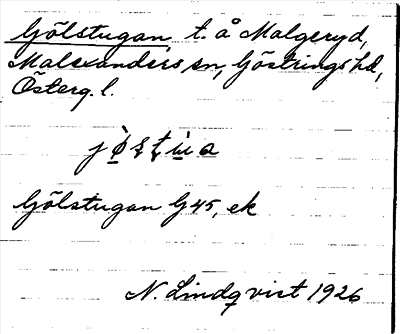 Gölstugan, t. å Malgeryd,
Malexanders sn, Göstrings hd,
Österg. l.
Gölstugan G45, ek
N. Lindqvist 1926